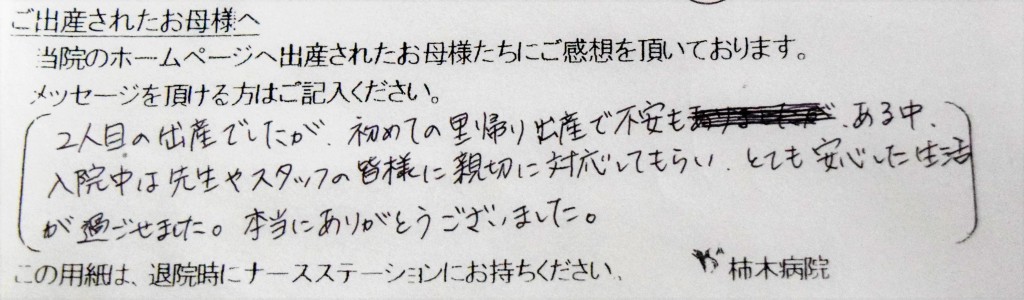 ご出産されたお母様へ
当院のホームページへ出産されたお母様たちにご感想を頂いております。
メッセージを頂ける方はご記入ください。
2人目の出産でしたが、初めての里帰り出産で不安も、ある中、
入院中は先生やスタッフの皆様に親切に対応してもらい、とても安心した生活
が過ごせました。本当にありがとうございました。
この用紙は、退院時にナースステーションにお持ちください。
柿木病院